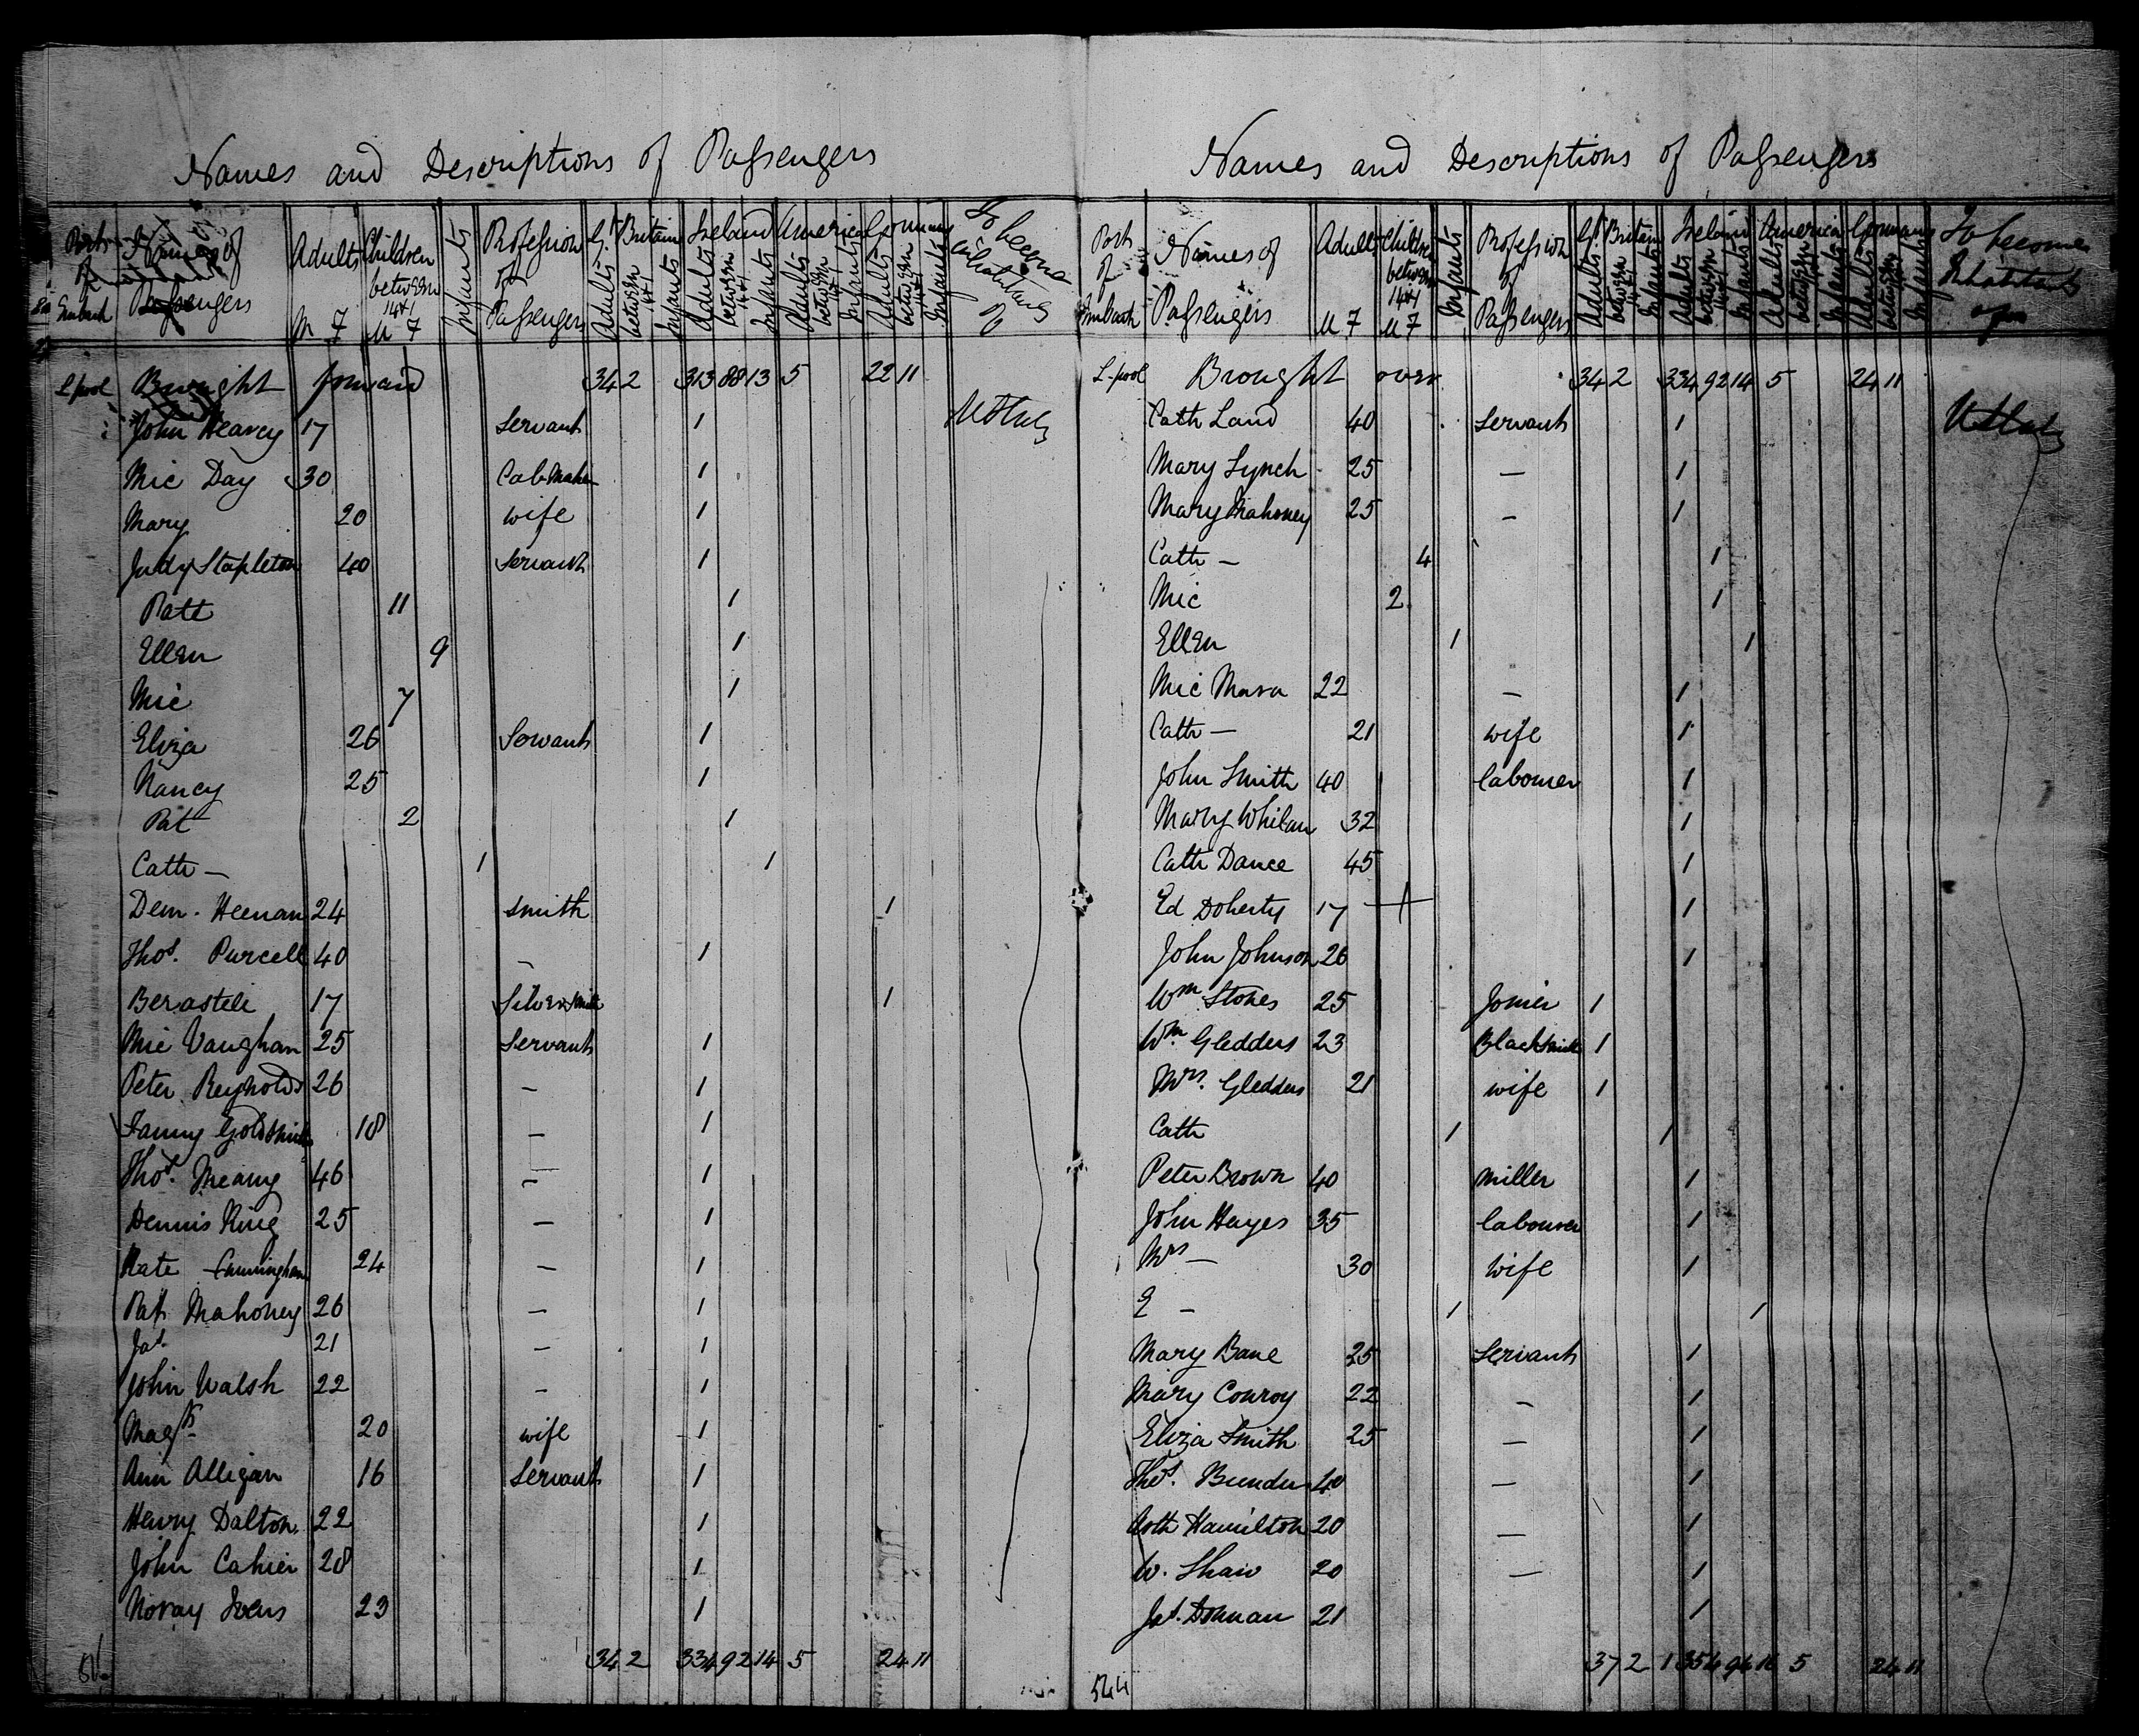 Names and Descriptions of Passengers
Ports of Embark
Names of Passengers
Adults M F
Children between 14 & 1 M F
Infants
Profession of Passengers
Gt Britain Adults between 14 & 1 Infants
Ireland Adults between 14 & 1 Infants
America Adults between 14 & 1 Infants
Germany Adults between 14 & 1 Infants
To become inhabitants of
Lpool Brought forward 34 2 313 88 13 5 22 11
John Heavey 17 Servant 1 U States
Mic Day 30 Cab Maker 1
Mary 20 wife 1
Judy Stapleton 40 Servant 1
Patt 11 1
Ellen 9 1
Mic 7 1
Eliza 26 Servant 1
Nancy 25 1
Pat 2 1
Cath — 1 1
Den. Heenan 24 Smith 1
Thos. Purcell 40 — 1
Berasteli 17 Silversmith 1
Mic Vaughan 25 Servant 1
Peter Reynolds 26 — 1
Fanny Goldsmith 18 — 1
Thos. Meany 46 — 1
Dennis King 25 — 1
Kate Cunningham 24 — 1
Pat Mahoney 26 — 1
Jas. 21 — 1
John Walsh 22 — 1
Magt. 20 wife 1
Ann Alligan 16 Servant 1
Henry Dalton 22 1
John Cahier 28 1
Noray Ivers 23 1
34 2 334 92 14 5 24 11
Names and Descriptions of Passengers
Ports of Embark
Names of Passengers
Adults M F
Children between 14 & 1 M F
Infants
Profession of Passengers
Gt Britain Adults between 14 & 1 Infants
Ireland Adults between 14 & 1 Infants
America Adults between 14 & 1 Infants
Germany Adults between 14 & 1 Infants
To become Inhabitants of
L-pool Brought over 34 2 334 92 14 5 24 11
Cath Land 40 Servant 1 U States
Mary Lynch 25 — 1
Mary Mahoney 25 — 1
Cath — 4 1
Mic 2 1
Ellen 1 1
Mic Mara 22 — 1
Cath — 21 wife 1
John Smith 40 labourer 1
Mary Whilan 32 1
Cath Dance 45 1
Ed Doherty 17 1
John Johnson 26 1
Wm Stokes 25 Joiner 1
Wm. Gledders 23 Blacksmith 1
Mrs. Gledders 21 wife 1
Cath 1 1
Peter Brown 40 Miller 1
John Hayes 35 labourer 1
Mrs — 30 wife 1
E — 1 1
Mary Bane 25 Servant 1
Mary Conroy 22 — 1
Eliza Smith 25 — 1
Thos. 40 — 1
Hamilton 20 — 1
W. Shaw 20 — 1
Jas. Dornan 21 1
37 2 1 354 94 16 5 24 11
544